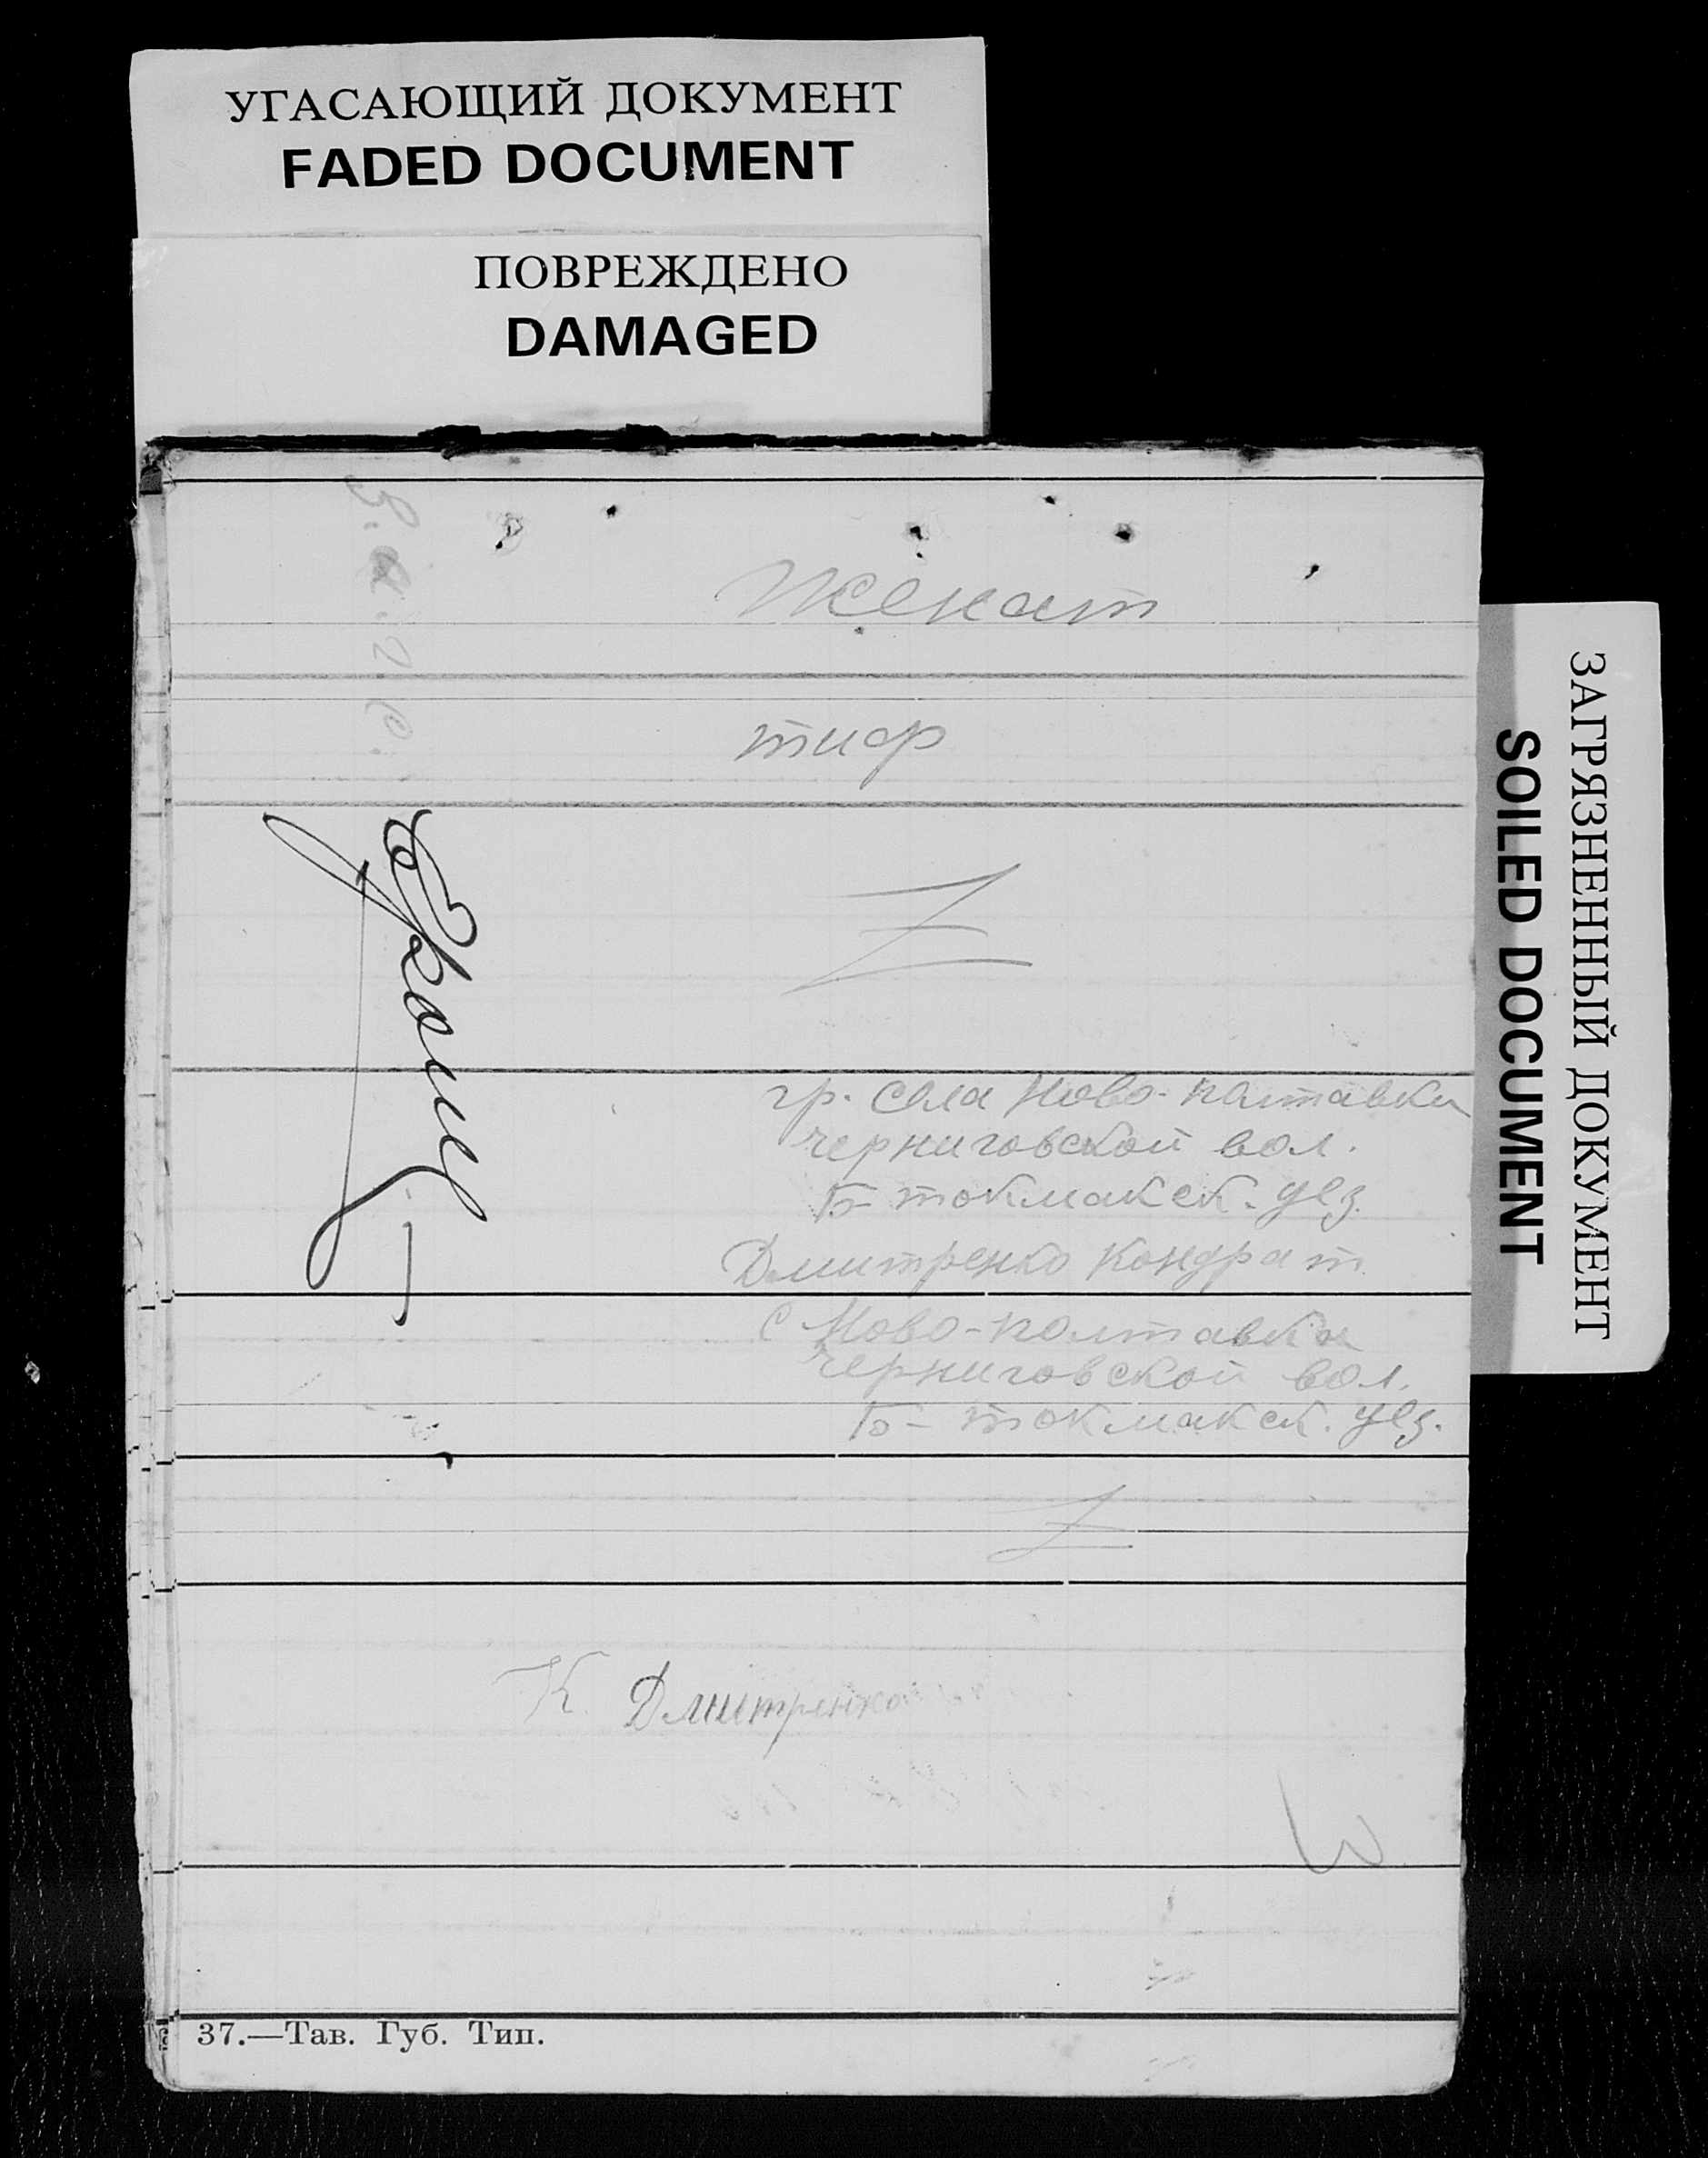 УГАСАЮЩИЙ ДОКУМЕНТ
FADED DOCUMENT
ПОВРЕЖДЕНО
DAMAGED
ЗАГРЯЗНЕННЫЙ ДОКУМЕНТ
SOILED DOCUMENT
женат
тиф
гр. села Ново-Полтавки
черниговской вол.
Б-токмакск. уез.
Дмитренко Кондрат
с Ново-полтавка
черниговской вол.
Б-токмакск. уез.
К Дмитренко
37.—Тав. Губ. Тип.